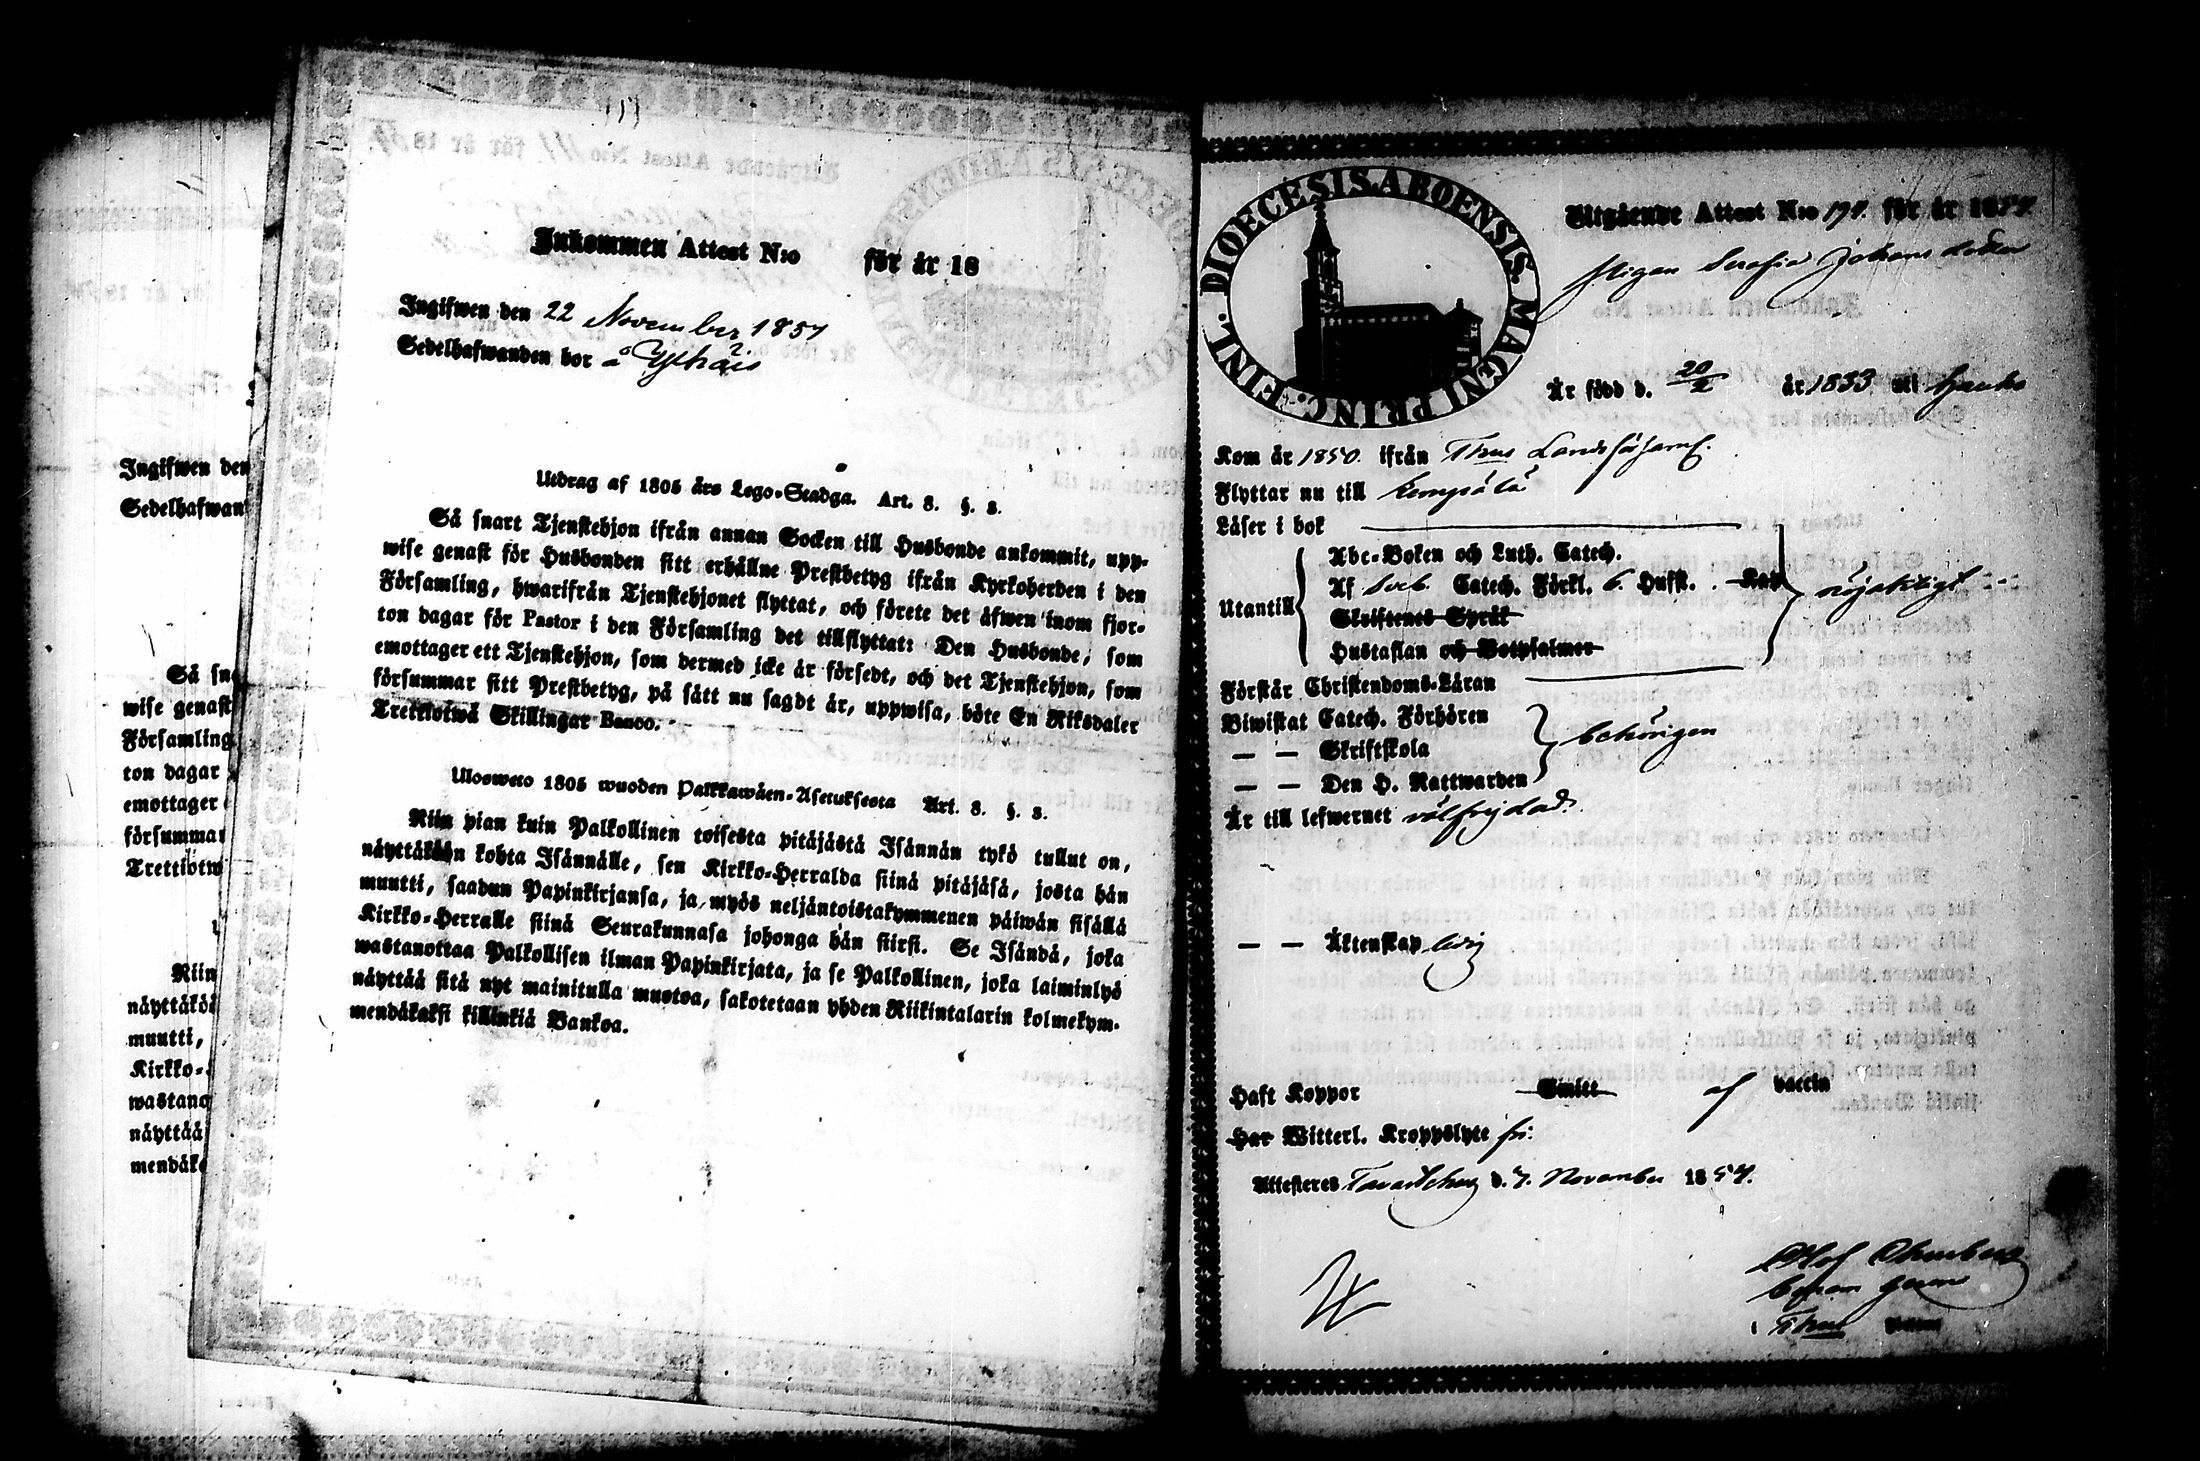 Inkommen Attest N:o för år 18
Ingifwen den 22 November 1854
Sedelhafwanden bor å
Utdrag af 1805 års Lego-Stadga. Art. 8. §. 3.
Så snart Tjenstehjon ifrån annan Socken till Husbonde ankommit, upp-
wise genast för Husbonden sitt erhållne Prestbetyg ifrån Kyrkoherden i den
Församling, hwarifrån Tjenstehjonet flyttat, och förete det äfwen inom fjor-
ton dagar för Pastor i den Församling det tillflyttat: Den Husbonde, som
emottager ett Tjenstehjon, som dermed icke är försedt, och det Tjenstehjon, som
försummar sitt Prestbetyg, på sätt nu sagdt är, uppwisa, böte En Riksdaler
Trettiotwå Skillingar Banco.
Ulosweto 1805 wuoden Palkkawäen-Asetuksesta Art. 8. §. 3.
Niin pian kuin Palkollinen toisesta pitäjästä Isännän tykö tullut on,
näyttäköön kohta Isännälle, sen Kirkko-Herralda siinä pitäjäsä, josta hän
muutti, saadun Papinkirjansa, ja myös neljäntoistakymmenen päiwän sisällä
Kirkko-Herralle siinä Seurakunnasa johonga hän siirsi. Se Isändä, joka
wastanottaa Palkollisen ilman Papinkirjata, ja se Palkollinen, joka laiminlyö
näyttää sitä nyt mainitulla muotoa, sakotetaan yhden Riikintalarin kolmekym-
mendäkaksi killinkiä Bankoa.
Ingifwen den
Sedelhafwan
Så sn
wise genast
Församling
ton dagar
emottager
försummar
Trettiotw
Niin
näyttäkö
muutti,
Kirkko-
wastano
näyttää
mendäk
DIOECESIS ABOENSIS. MAGNI PRINC. FINL.
Utgående Attest N:o 174. för år 1854
Pigan Serafia Johansdotter
Är född d. 20/2 år 1833 uti Hauho
Kom år 1850. ifrån Thus Landsförsaml.
Flyttar nu till
Läser i bok
Abc-Boken och Luth. Catech.
Utantill Af Sveb. Catech. Förkl. 6. Hufst. Kap
Skriftenes Språk
Hustaflan och Botpsalmer
nöjaktigt
Förstår Christendoms-Läran
Biwistat Catech. Förhören
— — Skriftskola
behörigen
— — Den H. Nattwarden
Är till lefwernet välfrejdad.
— — Äktenskap ledig
Haft Koppor Smitt af vaccin
Har Witterl. Kroppslyte fri.
Attesteres Tavastehus d. 7. November 1854.
Thus Pastor